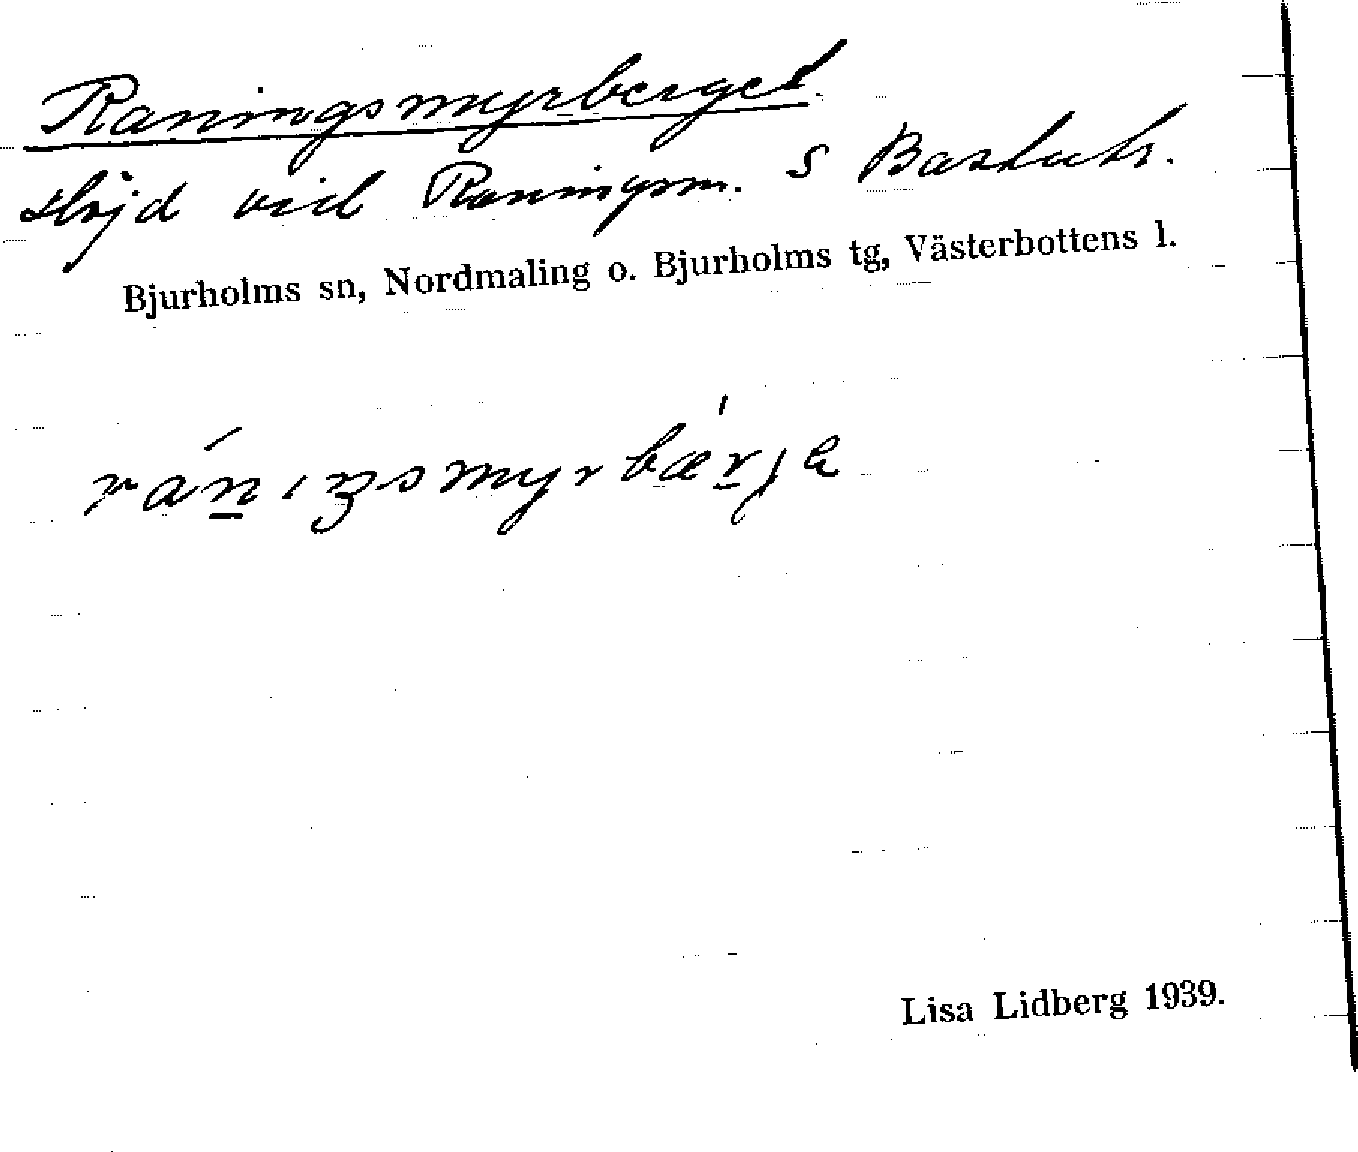 Raningsmyrberget.
Höjd vid Raningsm. S Bastutr.
Bjurholms sn, Nordmaling o. Bjurholms tg, Västerbottens l.
Lisa Lidberg 1939.